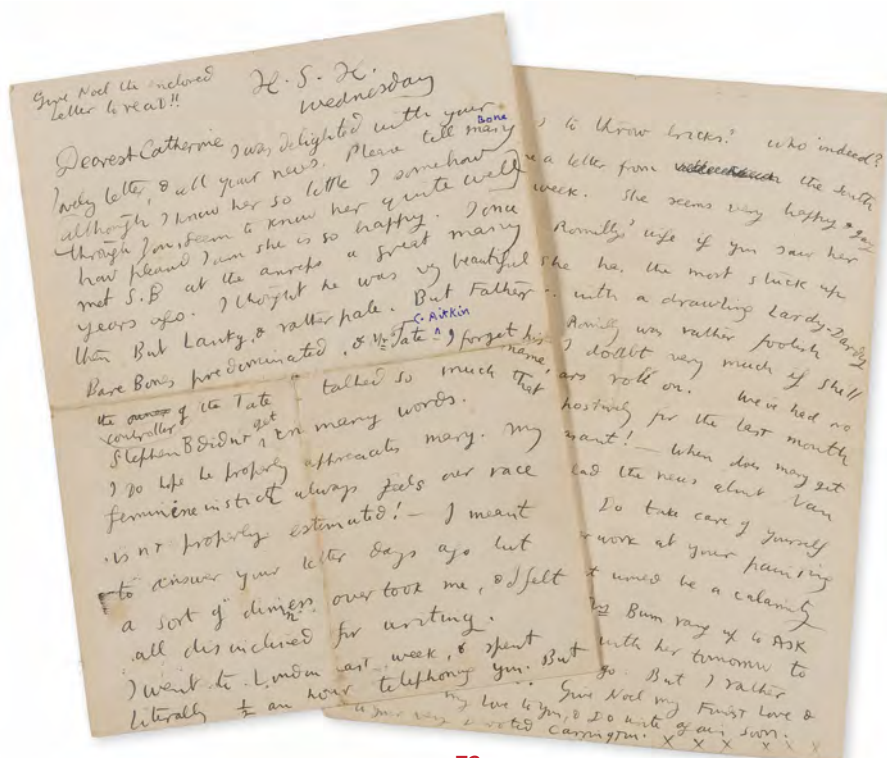 Give Noel the enclosed
letter to read!!
H.S.H.
Wednesday
Dearest Catherine I was delighted with your
lovely letter, & all your news. Please tell mary
Bone
although I know her so little I somehow
through you, seem to know her quite well
how pleased I am she is so happy. I once
met S.B at the anreps a great many
years ago. I thought he was very beautiful
then But Lanky, & rather pale. But Father
C. Aitkin
Bare Bones predominated, & Mr Tate ^ I forget his
name,
the owner of the Tate
controller
talked so much that
Stephen B didnt get in many words.
I do hope he properly appreciates mary. my
feminine instict always feels our race
is nt properly estimated! – I meant
to answer your letter days ago but
a sort of dimness over took me, & I felt
all disinclined for writing.
I went to London last week, & spent
Literally ½ an hour telephoning you. But
to throw bricks? who indeed?
a letter from the south
week. She seems very happy & gay
Romilly's wife if you saw her
she has the most stuck up
with a drawling Lardy-Dardy
Romilly was rather foolish
I doubt very much if she'll
ars roll on. We've had no
positively for the last month
ant! – When does mary get
ead the news about Van
Do take care of yourself
work at your painting
t would be a calamity
Bum rang up to ASK
with her tomorrow to
go. But I rather
Give Noel my Fondest Love &
my love to you, & Do write again soon.
your very devoted Carrington. X X X X X X